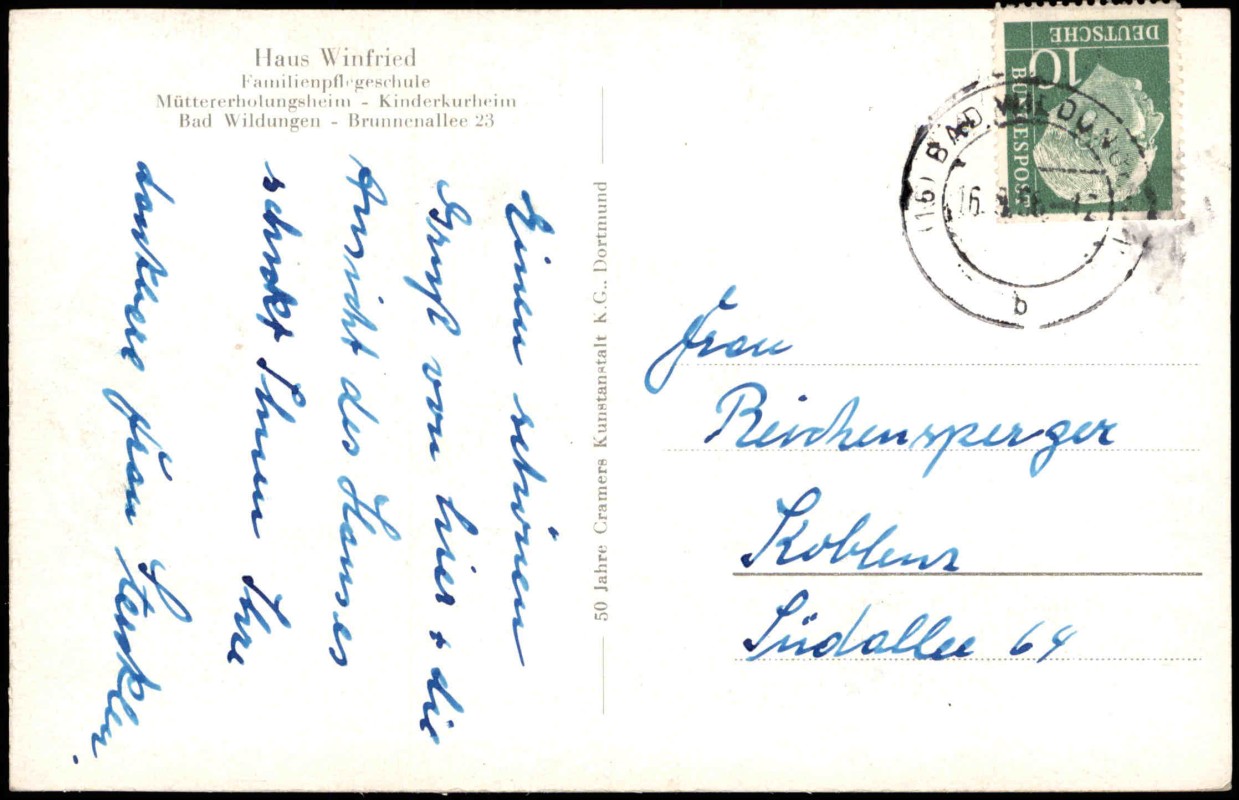 Haus Winfried
Familienpflegeschule
Müttererholungsheim - Kinderkurheim
Bad Wildungen - Brunnenallee 23
Einen schönen
Gruß von hier + die
Ansicht des Hauses
schickt Ihnen Ihre
dankbare
50 Jahre Cramers Kunstanstalt K.G., Dortmund
DEUTSCHE
BUNDESPOST
10
(16) BAD WILDUNGEN
16.
b
Frau
Reichensperger
Koblenz
Südallee 64